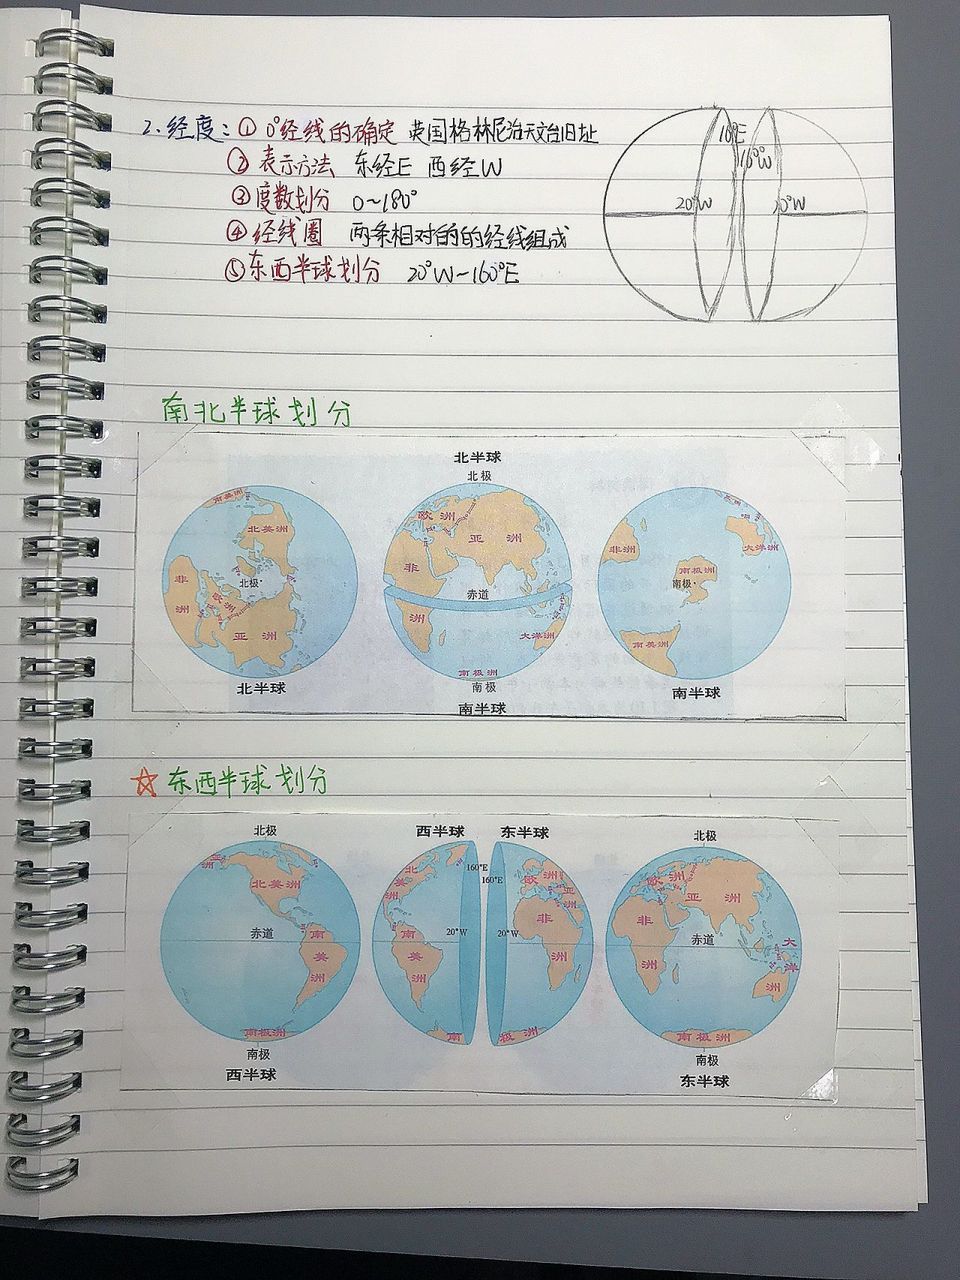 2.经度：① 0°经线的确定 英国格林尼治天文台旧址
② 表示方法 东经E 西经W
③ 度数划分 0~180°
④ 经线圈 两条相对的的经线组成
⑤ 东西半球划分 20°W-160°E
20°W
南北半球划分
北半球
北极
南美洲
北美洲
北极
非洲
欧洲
亚洲
北半球
欧洲
亚洲
非洲
赤道
大洋洲
南极洲
南极
南半球
非洲
大洋洲
南极洲
南极
南美洲
南半球
☆ 东西半球划分
北极
亚洲
北美洲
赤道
南美洲
南极洲
南极
西半球
西半球
北美洲
160°E
20°W
南美洲
南
东半球
160°E
欧洲
亚洲
非洲
20°W
极洲
北极
欧洲
亚洲
非洲
赤道
大洋洲
南极洲
南极
东半球